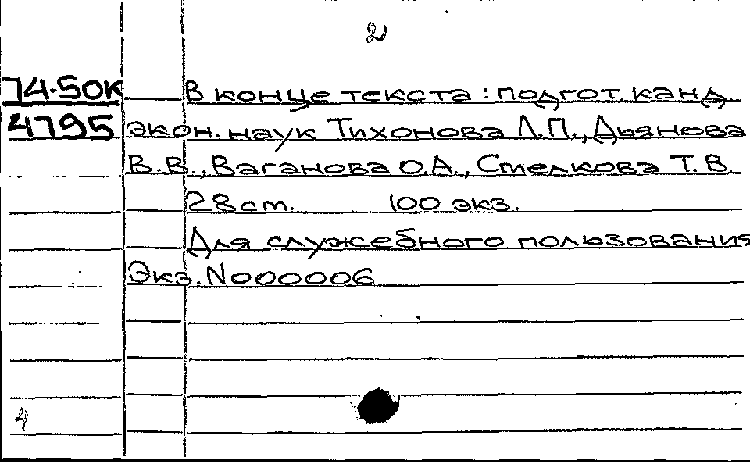 2
74-50К В конце текста: подгот. канд.
4795 экон. наук Тихонова Л.П., Дьянова
В.В., Ваганова О.А., Смелкова Т.В.
28 cm. 100 экз.
Для служебного пользования
Экз. N000006
4